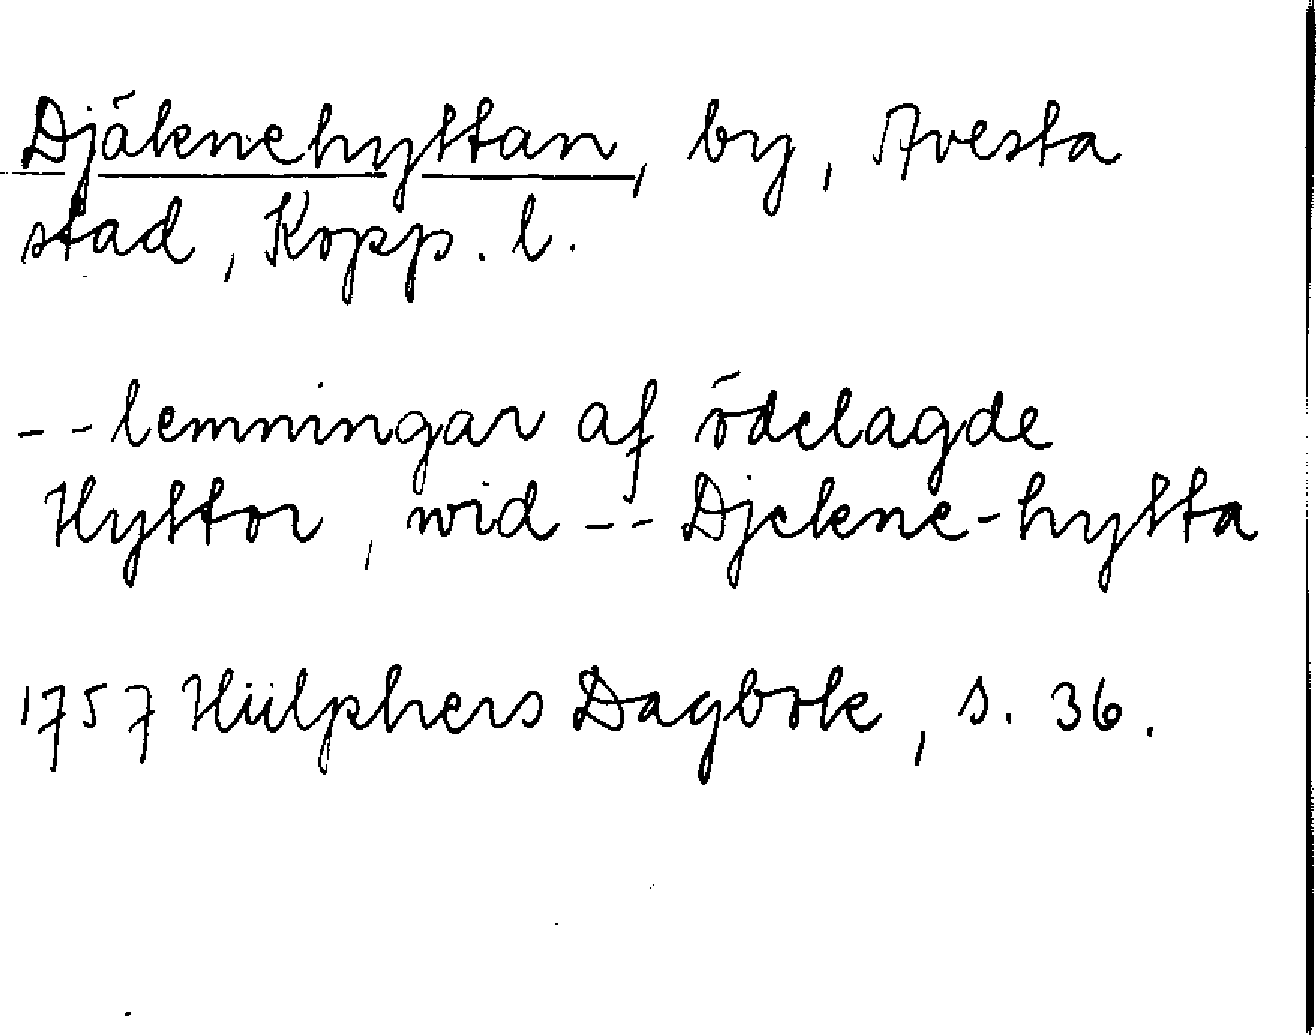 Djäknehyttan, by, Avesta
stad, Kopp. l.
-- lemningar af ödelagde
Hyttor, wid -- Djekne-hytta
1757 Hülphers Dagbok, s. 36.